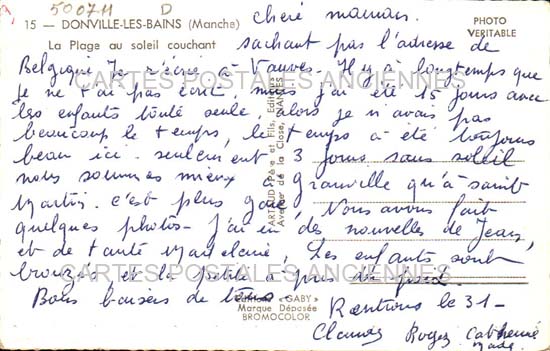 500711 D
15 — DONVILLE-LES-BAINS (Manche)
La Plage au soleil couchant
PHOTO
VERITABLE
chère maman.
sachant pas l'adresse de
Belgique Je t'écris à Vanves. Il y a longtemps que
je ne t'ai pas écrit, mais j'ai été 15 jours avec
les enfants toute seule, alors je n'avais pas
beaucoup le temps, le temps a été toujours
beau ici. seulement 3 jours sans soleil
nous sommes mieux à Granville qu'à saint
Martin. c'est plus gai, Nous avons fait
quelques photos. j'ai eu des nouvelles de Jean,
et de tante Madeleine, Les enfants sont
bronzés, et la petite a pris du poid.
Bons baisers de tous
Rentrons le 31-
Roger Catherine
ARTAUD Père et Fils, Editeurs
Avenue de la Close, NANTES
« GABY »
Marque Déposée
BROMOCOLOR
CARTES POSTALES ANCIENNES
CARTES POSTALES ANCIENNES